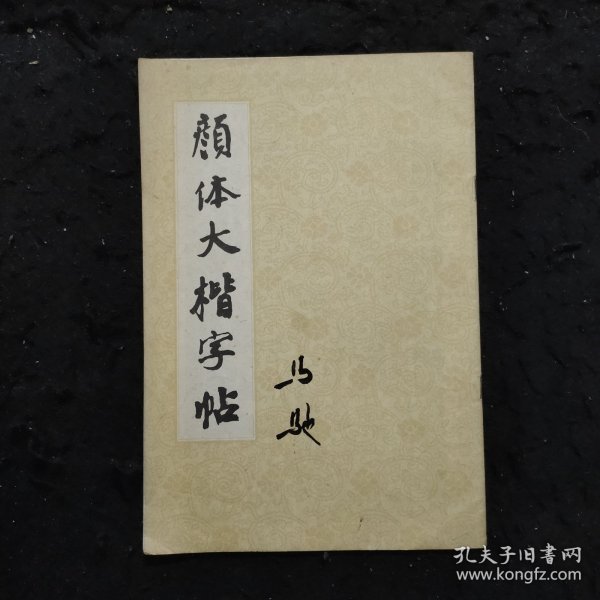 顏体大楷字帖
马驰
孔夫子旧書网
www.kongfz.com